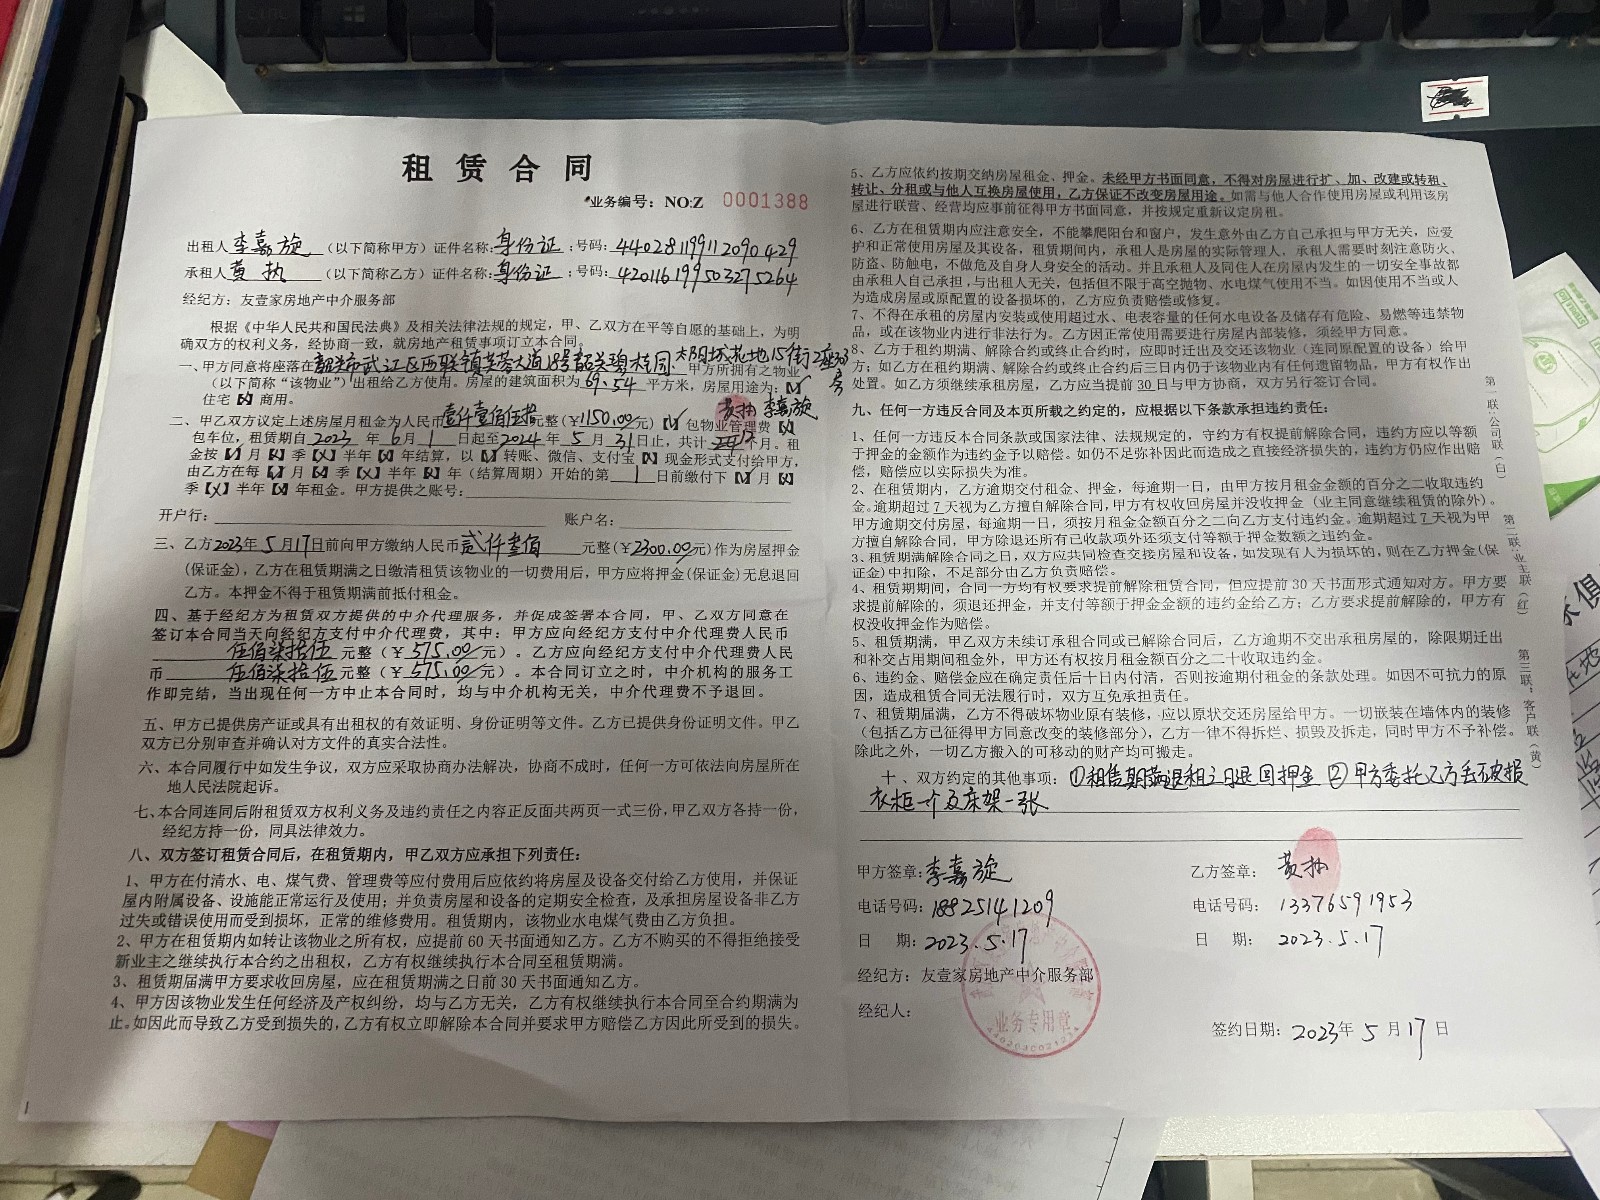 租赁合同
业务编号：NO:Z 0001388
出租人李嘉旋（以下简称甲方）证件名称：身份证；号码：440281199112090429
承租人黄执（以下简称乙方）证件名称：身份证；号码：420116199503275264
经纪方：友壹家房地产中介服务部
根据《中华人民共和国民法典》及相关法律法规的规定，甲、乙双方在平等自愿的基础上，为明
确双方的权利义务，经协商一致，就房地产租赁事项订立本合同。
一、甲方同意将座落在韶关市武江区西联镇芙蓉大道18号韶关碧桂园太阳城花地15街2座303房 甲方所拥有之物业
（以下简称“该物业”）出租给乙方使用。房屋的建筑面积为69.54平方米，房屋用途为：【✓】
住宅【✗】商用。
黄执 李嘉旋
二、甲乙双方议定上述房屋月租金为人民币壹仟壹佰伍拾元整（¥1150.00元）【✓】包物业管理费【✗】
包车位，租赁期自2023年6月1日起至2024年5月31日止，共计12个月。租
金按【✓】月【✗】季【✗】半年【✗】年结算，以【✓】转账、微信、支付宝【✗】现金形式支付给甲方，
由乙方在每【✓】月【✗】季【✗】半年【✗】年（结算周期）开始的第1日前缴付下【✓】月【✗】
季【✗】半年【✗】年租金。甲方提供之账号：
开户行： 账户名：
三、乙方2023年5月17日前向甲方缴纳人民币贰仟叁佰元整（¥2300.00元）作为房屋押金
(保证金)，乙方在租赁期满之日缴清租赁该物业的一切费用后，甲方应将押金(保证金)无息退回
乙方。本押金不得于租赁期满前抵付租金。
四、基于经纪方为租赁双方提供的中介代理服务，并促成签署本合同，甲、乙双方同意在
签订本合同当天向经纪方支付中介代理费，其中：甲方应向经纪方支付中介代理费人民币
伍佰柒拾伍元整（¥575.00元）。乙方应向经纪方支付中介代理费人民
币伍佰柒拾伍元整（¥575.00元）。本合同订立之时，中介机构的服务工
作即完结，当出现任何一方中止本合同时，均与中介机构无关，中介代理费不予退回。
五、甲方已提供房产证或具有出租权的有效证明、身份证明等文件。乙方已提供身份证明文件。甲乙
双方已分别审查并确认对方文件的真实合法性。
六、本合同履行中如发生争议，双方应采取协商办法解决，协商不成时，任何一方可依法向房屋所在
地人民法院起诉。
七、本合同连同后附租赁双方权利义务及违约责任之内容正反面共两页一式三份，甲乙双方各持一份，
经纪方持一份，同具法律效力。
八、双方签订租赁合同后，在租赁期内，甲乙双方应承担下列责任：
1、甲方在付清水、电、煤气费、管理费等应付费用后应依约将房屋及设备交付给乙方使用，并保证
屋内附属设备、设施能正常运行及使用；并负责房屋和设备的定期安全检查，及承担房屋设备非乙方
过失或错误使用而受到损坏，正常的维修费用。租赁期内，该物业水电煤气费由乙方负担。
2、甲方在租赁期内如转让该物业之所有权，应提前60天书面通知乙方。乙方不购买的不得拒绝接受
新业主之继续执行本合约之出租权，乙方有权继续执行本合同至租赁期满。
3、租赁期届满甲方要求收回房屋，应在租赁期满之日前30天书面通知乙方。
4、甲方因该物业发生任何经济及产权纠纷，均与乙方无关，乙方有权继续执行本合同至合约期满为
止。如因此而导致乙方受到损失的，乙方有权立即解除本合同并要求甲方赔偿乙方因此所受到的损失。
5、乙方应依约按期交纳房屋租金、押金。未经甲方书面同意，不得对房屋进行扩、加、改建或转租、
转让、分租或与他人互换房屋使用，乙方保证不改变房屋用途。如需与他人合作使用房屋或利用该房
屋进行联营、经营均应事前征得甲方书面同意，并按规定重新议定房租。
6、乙方在租赁期内应注意安全，不能攀爬阳台和窗户，发生意外由乙方自己承担与甲方无关，应爱
护和正常使用房屋及其设备，租赁期间内，承租人是房屋的实际管理人，承租人需要时刻注意防火、
防盗、防触电，不做危及自身人身安全的活动。并且承租人及同住人在房屋内发生的一切安全事故都
由承租人自己承担，与出租人无关，包括但不限于高空抛物、水电煤气使用不当。如因使用不当或人
为造成房屋或原配置的设备损坏的，乙方应负责赔偿或修复。
7、不得在承租的房屋内安装或使用超过水、电表容量的任何水电设备及储存有危险、易燃等违禁物
品，或在该物业内进行非法行为。乙方因正常使用需要进行房屋内部装修，须经甲方同意。
8、乙方于租约期满、解除合约或终止合约时，应即时迁出及交还该物业（连同原配置的设备）给甲
方；如乙方在租约期满、解除合约或终止合约后三日内仍于该物业内有任何遗留物品，甲方有权作出
处置。如乙方须继续承租房屋，乙方应当提前30日与甲方协商，双方另行签订合同。
九、任何一方违反合同及本页所载之约定的，应根据以下条款承担违约责任：
1、任何一方违反本合同条款或国家法律、法规规定的，守约方有权提前解除合同，违约方应以等额
于押金的金额作为违约金予以赔偿。如仍不足弥补因此而造成之直接经济损失的，违约方仍应作出赔
偿，赔偿应以实际损失为准。
2、在租赁期内，乙方逾期交付租金、押金，每逾期一日，由甲方按月租金金额的百分之二收取违约
金。逾期超过7天视为乙方擅自解除合同，甲方有权收回房屋并没收押金（业主同意继续租赁的除外）。
甲方逾期交付房屋，每逾期一日，须按月租金金额百分之二向乙方支付违约金。逾期超过7天视为甲
方擅自解除合同，甲方除退还所有已收款项外还须支付等额于押金数额之违约金。
3、租赁期满解除合同之日，双方应共同检查交接房屋和设备，如发现有人为损坏的，则在乙方押金(保
证金)中扣除，不足部分由乙方负责赔偿。
4、租赁期期间，合同一方均有权要求提前解除租赁合同，但应提前30天书面形式通知对方。甲方要
求提前解除的，须退还押金，并支付等额于押金金额的违约金给乙方；乙方要求提前解除的，甲方有
权没收押金作为赔偿。
5、租赁期满，甲乙双方未续订承租合同或已解除合同后，乙方逾期不交出承租房屋的，除限期迁出
和补交占用期间租金外，甲方还有权按月租金额百分之二十收取违约金。
6、违约金、赔偿金应在确定责任后十日内付清，否则按逾期付租金的条款处理。如因不可抗力的原
因，造成租赁合同无法履行时，双方互免承担责任。
7、租赁期届满，乙方不得破坏物业原有装修，应以原状交还房屋给甲方。一切嵌装在墙体内的装修
（包括乙方已征得甲方同意改变的装修部分），乙方一律不得拆烂、损毁及拆走，同时甲方不予补偿。
除此之外，一切乙方搬入的可移动的财产均可搬走。
十、双方约定的其他事项：①租赁期满退租之日退回押金 ②甲方委托乙方丢弃破损
衣柜一个及床架一张
甲方签章：李嘉旋 乙方签章：黄执
电话号码：18825141209 电话号码：13376591953
日 期：2023.5.17 日 期：2023.5.17
经纪方：友壹家房地产中介服务部
经纪人：
业务专用章
签约日期：2023年5月17日
第一联：公司联（白）
第二联：业主联（红）
第三联：客户联（黄）